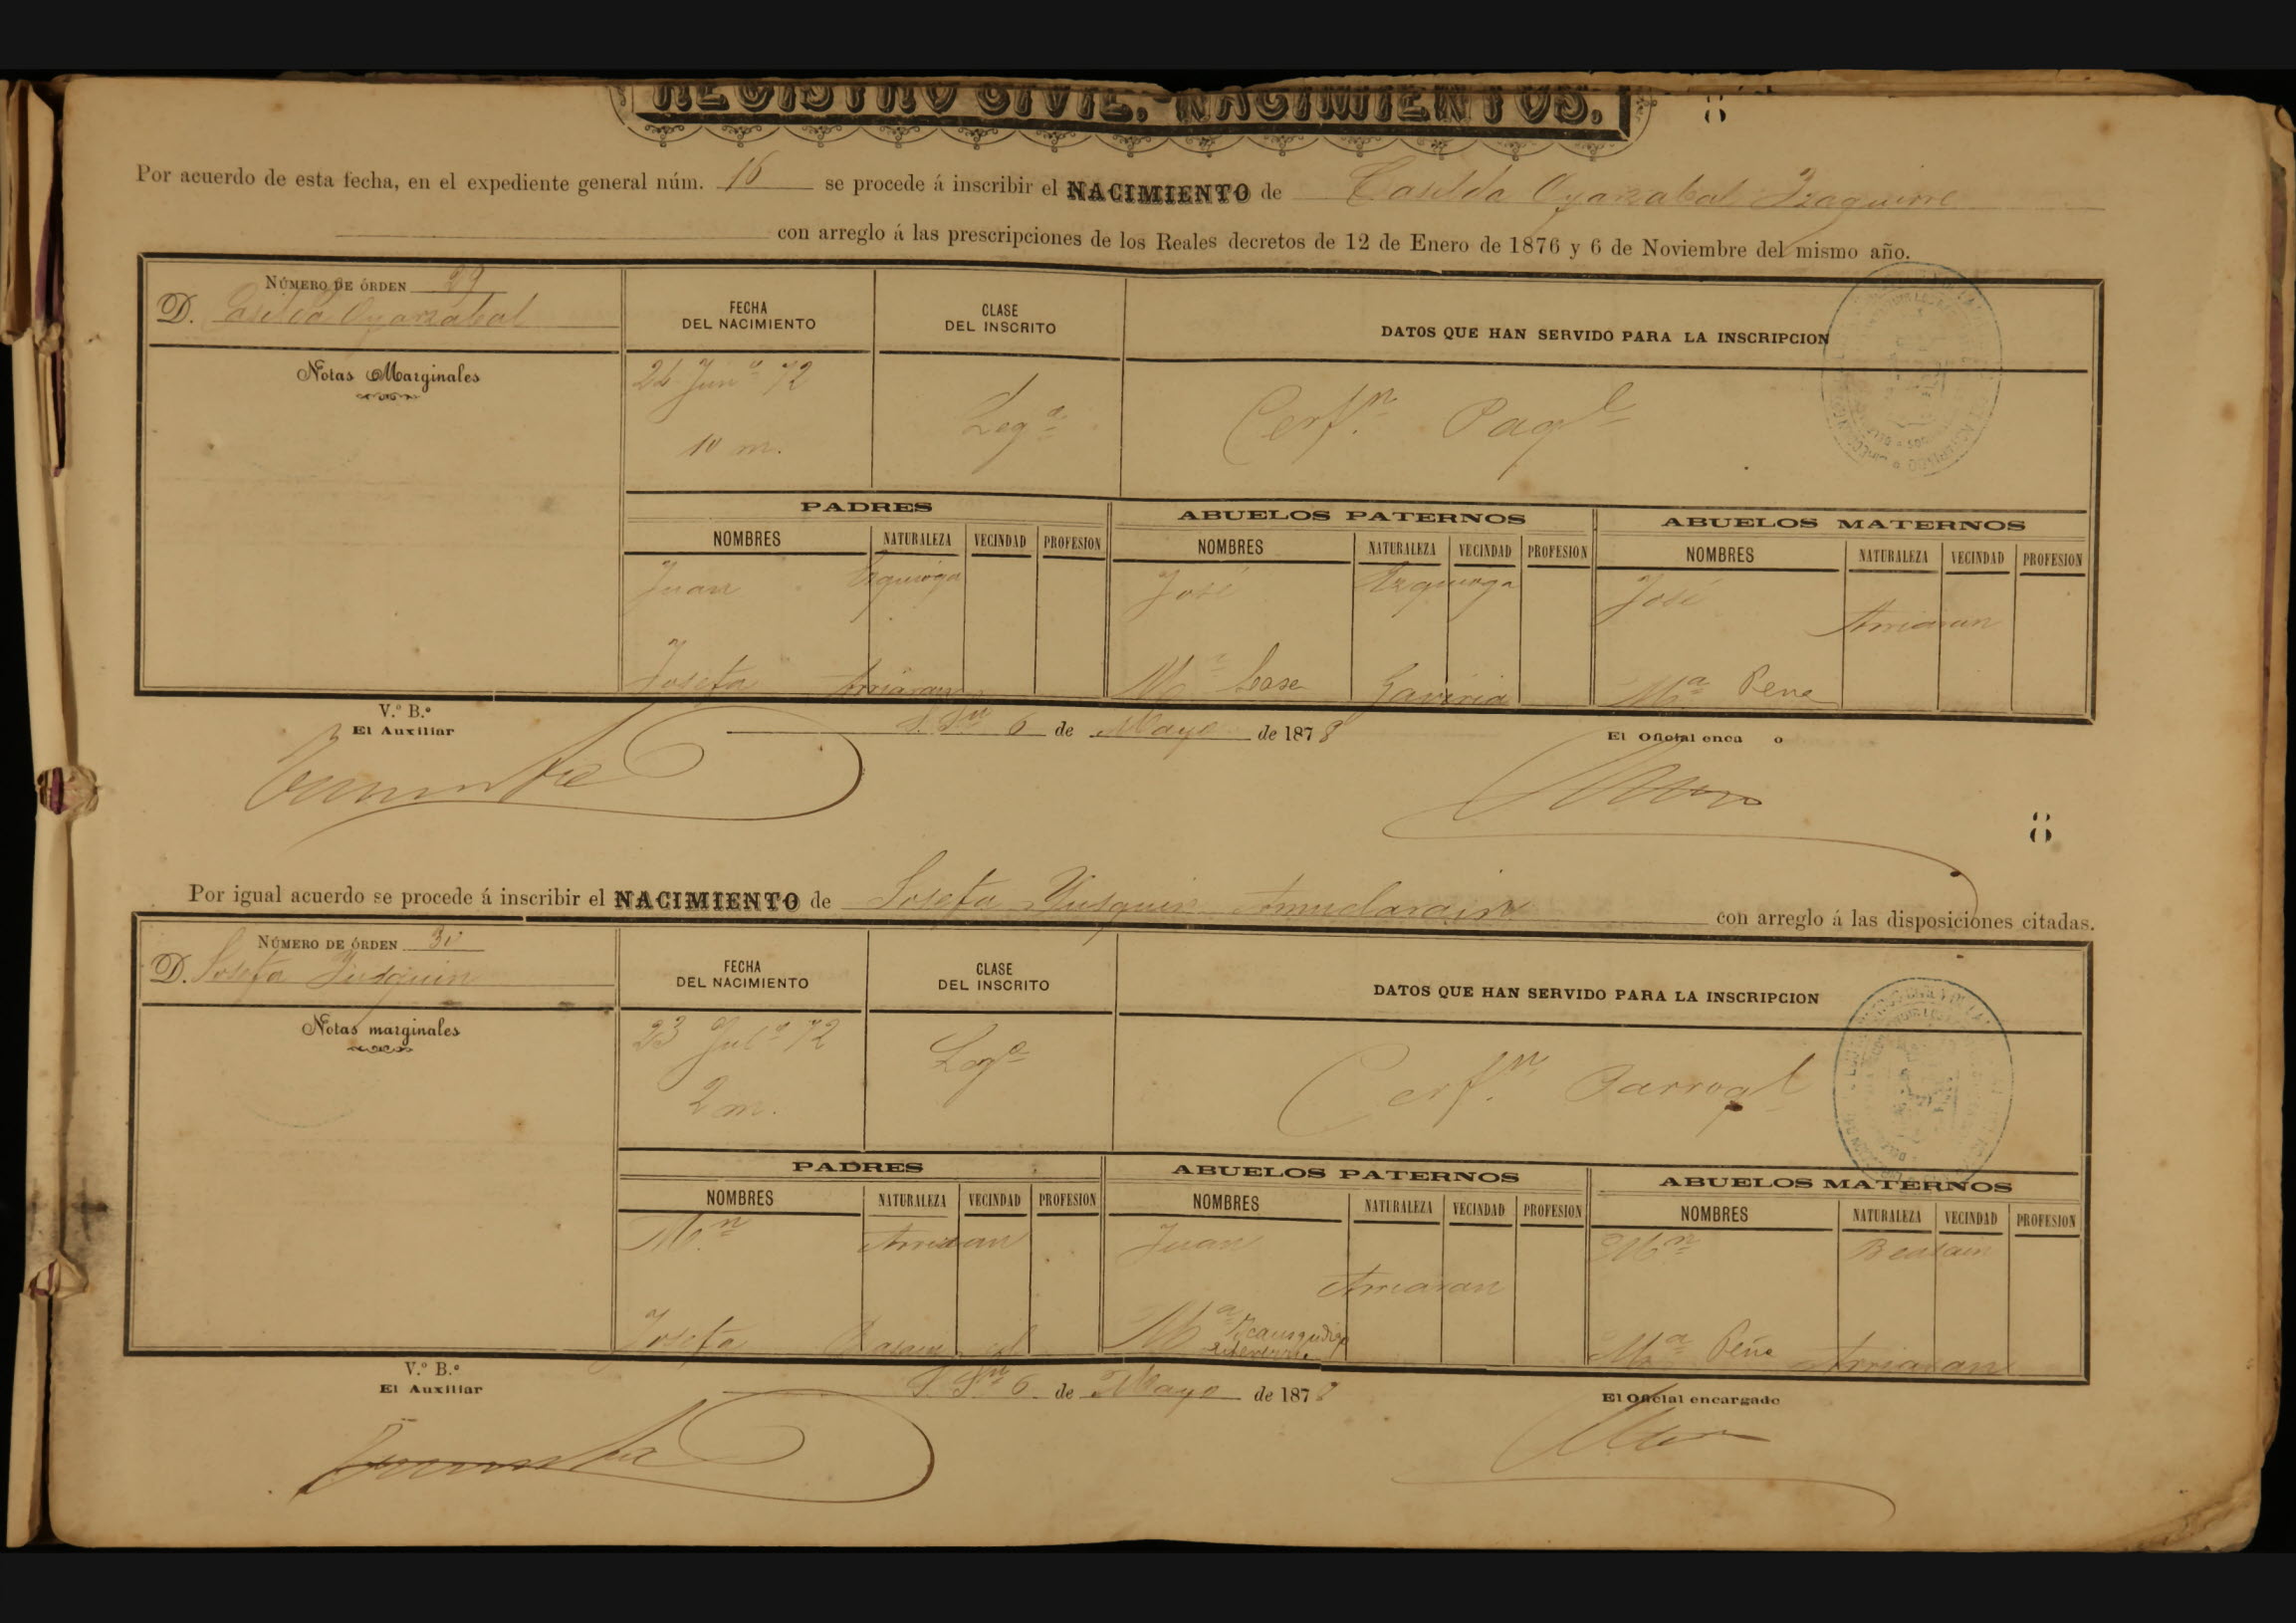 REGISTRO CIVIL.-NACIMIENTOS. 8
Por acuerdo de esta fecha, en el expediente general núm. 16 se procede á inscribir el NACIMIENTO de Casilda Oyarzabal Izaguirre
con arreglo á las prescripciones de los Reales decretos de 12 de Enero de 1876 y 6 de Noviembre del mismo año.
NÚMERO DE ÓRDEN 29
D. Casilda Oyarzabal
Notas Marginales
FECHA DEL NACIMIENTO
CLASE DEL INSCRITO
DATOS QUE HAN SERVIDO PARA LA INSCRIPCION
24 Junº 72
10 m.
Legª
Certⁿ. Paqˡ
PADRES ABUELOS PATERNOS ABUELOS MATERNOS
NOMBRES NATURALEZA VECINDAD PROFESION NOMBRES NATURALEZA VECINDAD PROFESION NOMBRES NATURALEZA VECINDAD PROFESION
Juan Ezquioga José Ezquioga José
Arriaran
Josefa Arriaran Mª Gaviria Mª
V.º B.º
El Auxiliar
6 de Mayo de 1878
El Oficial enca o
8
Por igual acuerdo se procede á inscribir el NACIMIENTO de Josefa Yusquin Amundarain con arreglo á las disposiciones citadas.
NÚMERO DE ÓRDEN 30
D. Josefa Yusquin
Notas marginales
FECHA DEL NACIMIENTO
CLASE DEL INSCRITO
DATOS QUE HAN SERVIDO PARA LA INSCRIPCION
23 Julº 72
2 m.
Legª
Certⁿ. Parroqˡ
PADRES ABUELOS PATERNOS ABUELOS MATERNOS
NOMBRES NATURALEZA VECINDAD PROFESION NOMBRES NATURALEZA VECINDAD PROFESION NOMBRES NATURALEZA VECINDAD PROFESION
Mⁿ Arriaran Juan Mⁿ Beasain
Arriaran
Josefa Mª Mª Arriaran
V.º B.º
El Auxiliar
6 de Mayo de 1878
El Oficial encargado